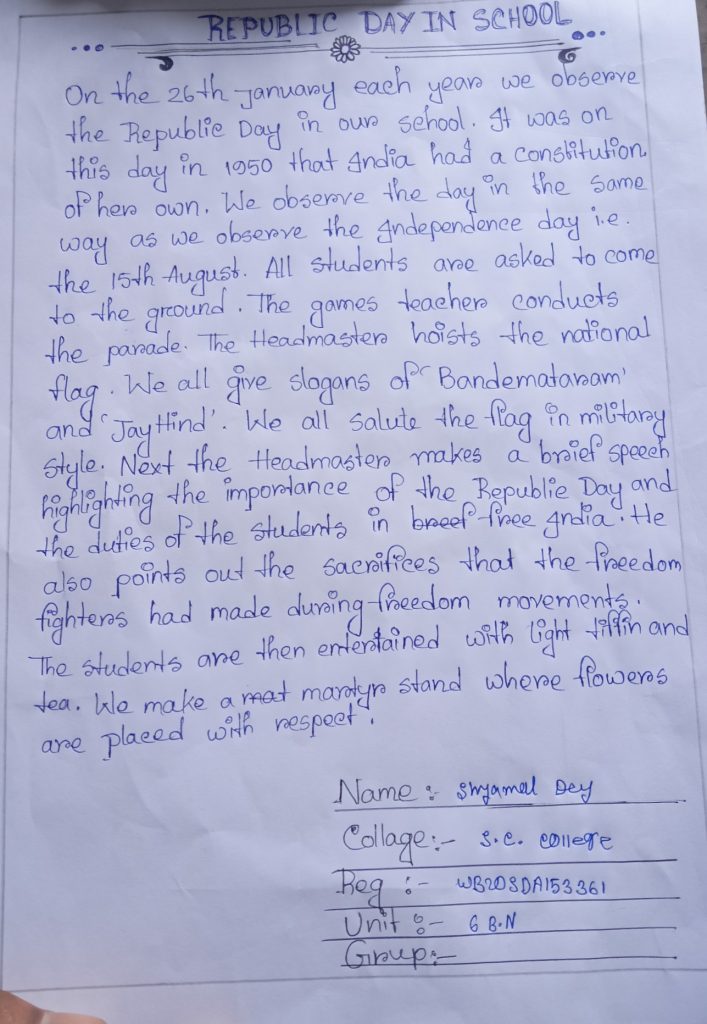 REPUBLIC DAY IN SCHOOL
On the 26th January each year we observe
the Republic Day in our school. It was on
this day in 1950 that India had a constitution
of her own. We observe the day in the same
way as we observe the Independence day i.e.
the 15th August. All students are asked to come
to the ground. The games teacher conducts
the parade. The Headmaster hoists the national
flag. We all give slogans of 'Bandemataram'
and 'Jay Hind'. We all salute the flag in military
style. Next the Headmaster makes a brief speech
highlighting the importance of the Republic Day and
the duties of the students in breef free India. He
also points out the sacrifices that the freedom
fighters had made during freedom movements.
The students are then entertained with light tiffin and
tea. We make a mat martyr stand where flowers
are placed with respect.
Name :- Shyamal Dey
Collage:- S.C. College
Reg :- WB20SDA153361
Unit :- 6 B.N
Group:-